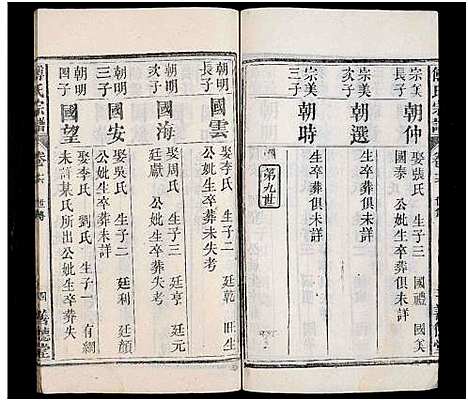 傅氏宗譜
卷之六
世系
宗美長子
朝仲
娶張氏 生子三 國禮 國美
國泰 公妣生卒葬俱未詳
宗美次子
朝選
生卒葬俱未詳
宗美三子
朝時
生卒葬俱未詳
第九世
朝明長子
國雲
娶李氏 生子二 廷乾 旺生
公妣生卒葬未失考
朝明次子
國海
娶周氏 生子三 廷亨 廷元
廷獻 公妣生卒葬失考
朝明三子
國安
娶吳氏 生子二 廷利 廷顏
公妣生卒葬未詳
朝明四子
國望
娶李氏 劉氏 生子一 有綱
未詳某氏所出公妣生卒葬失
傅氏宗譜
卷之六
世系
四
善德堂